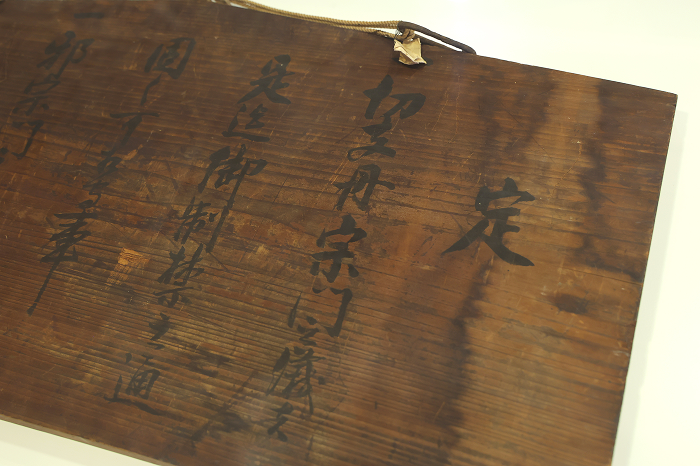 定
切支丹宗門之儀
是迄御制禁之通
固く可相守事
一
邪宗門